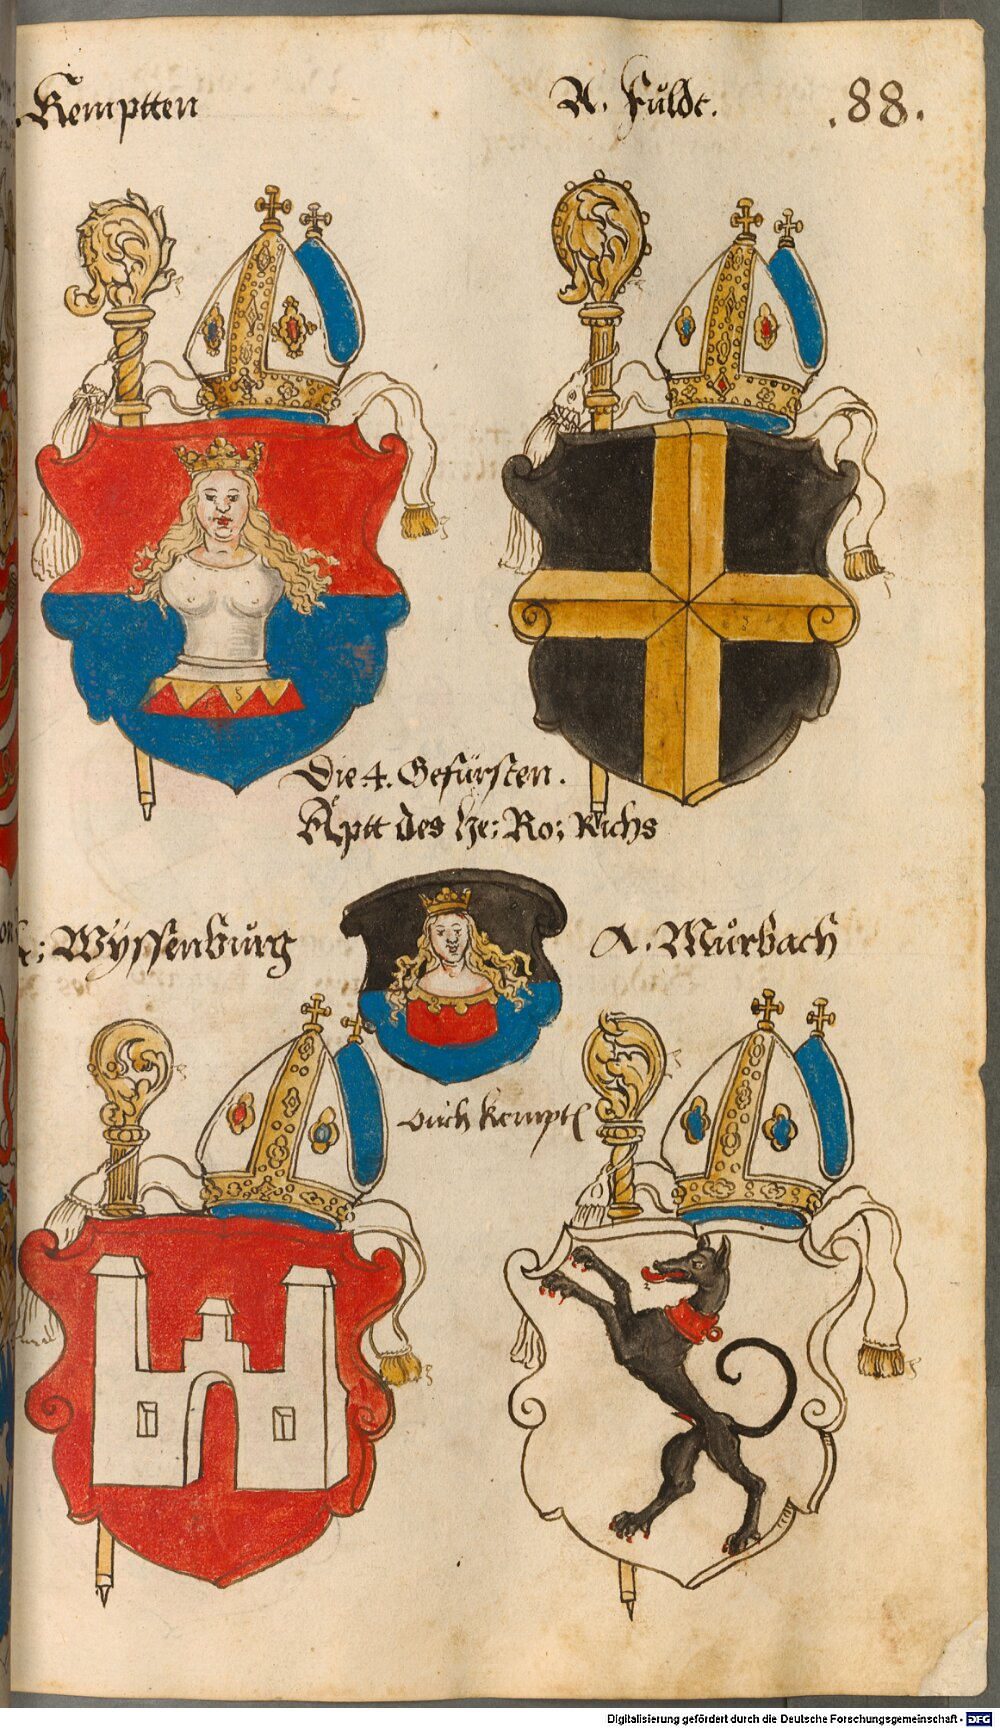 Kemptten
A. Fuldt.
.88.
Die 4. Gefürsten.
Äptt des He: Ro: Richs
Wÿssenburg
A. Murbach
ouch Kempt
Digitalisierung gefördert durch die Deutsche Forschungsgemeinschaft - DFG